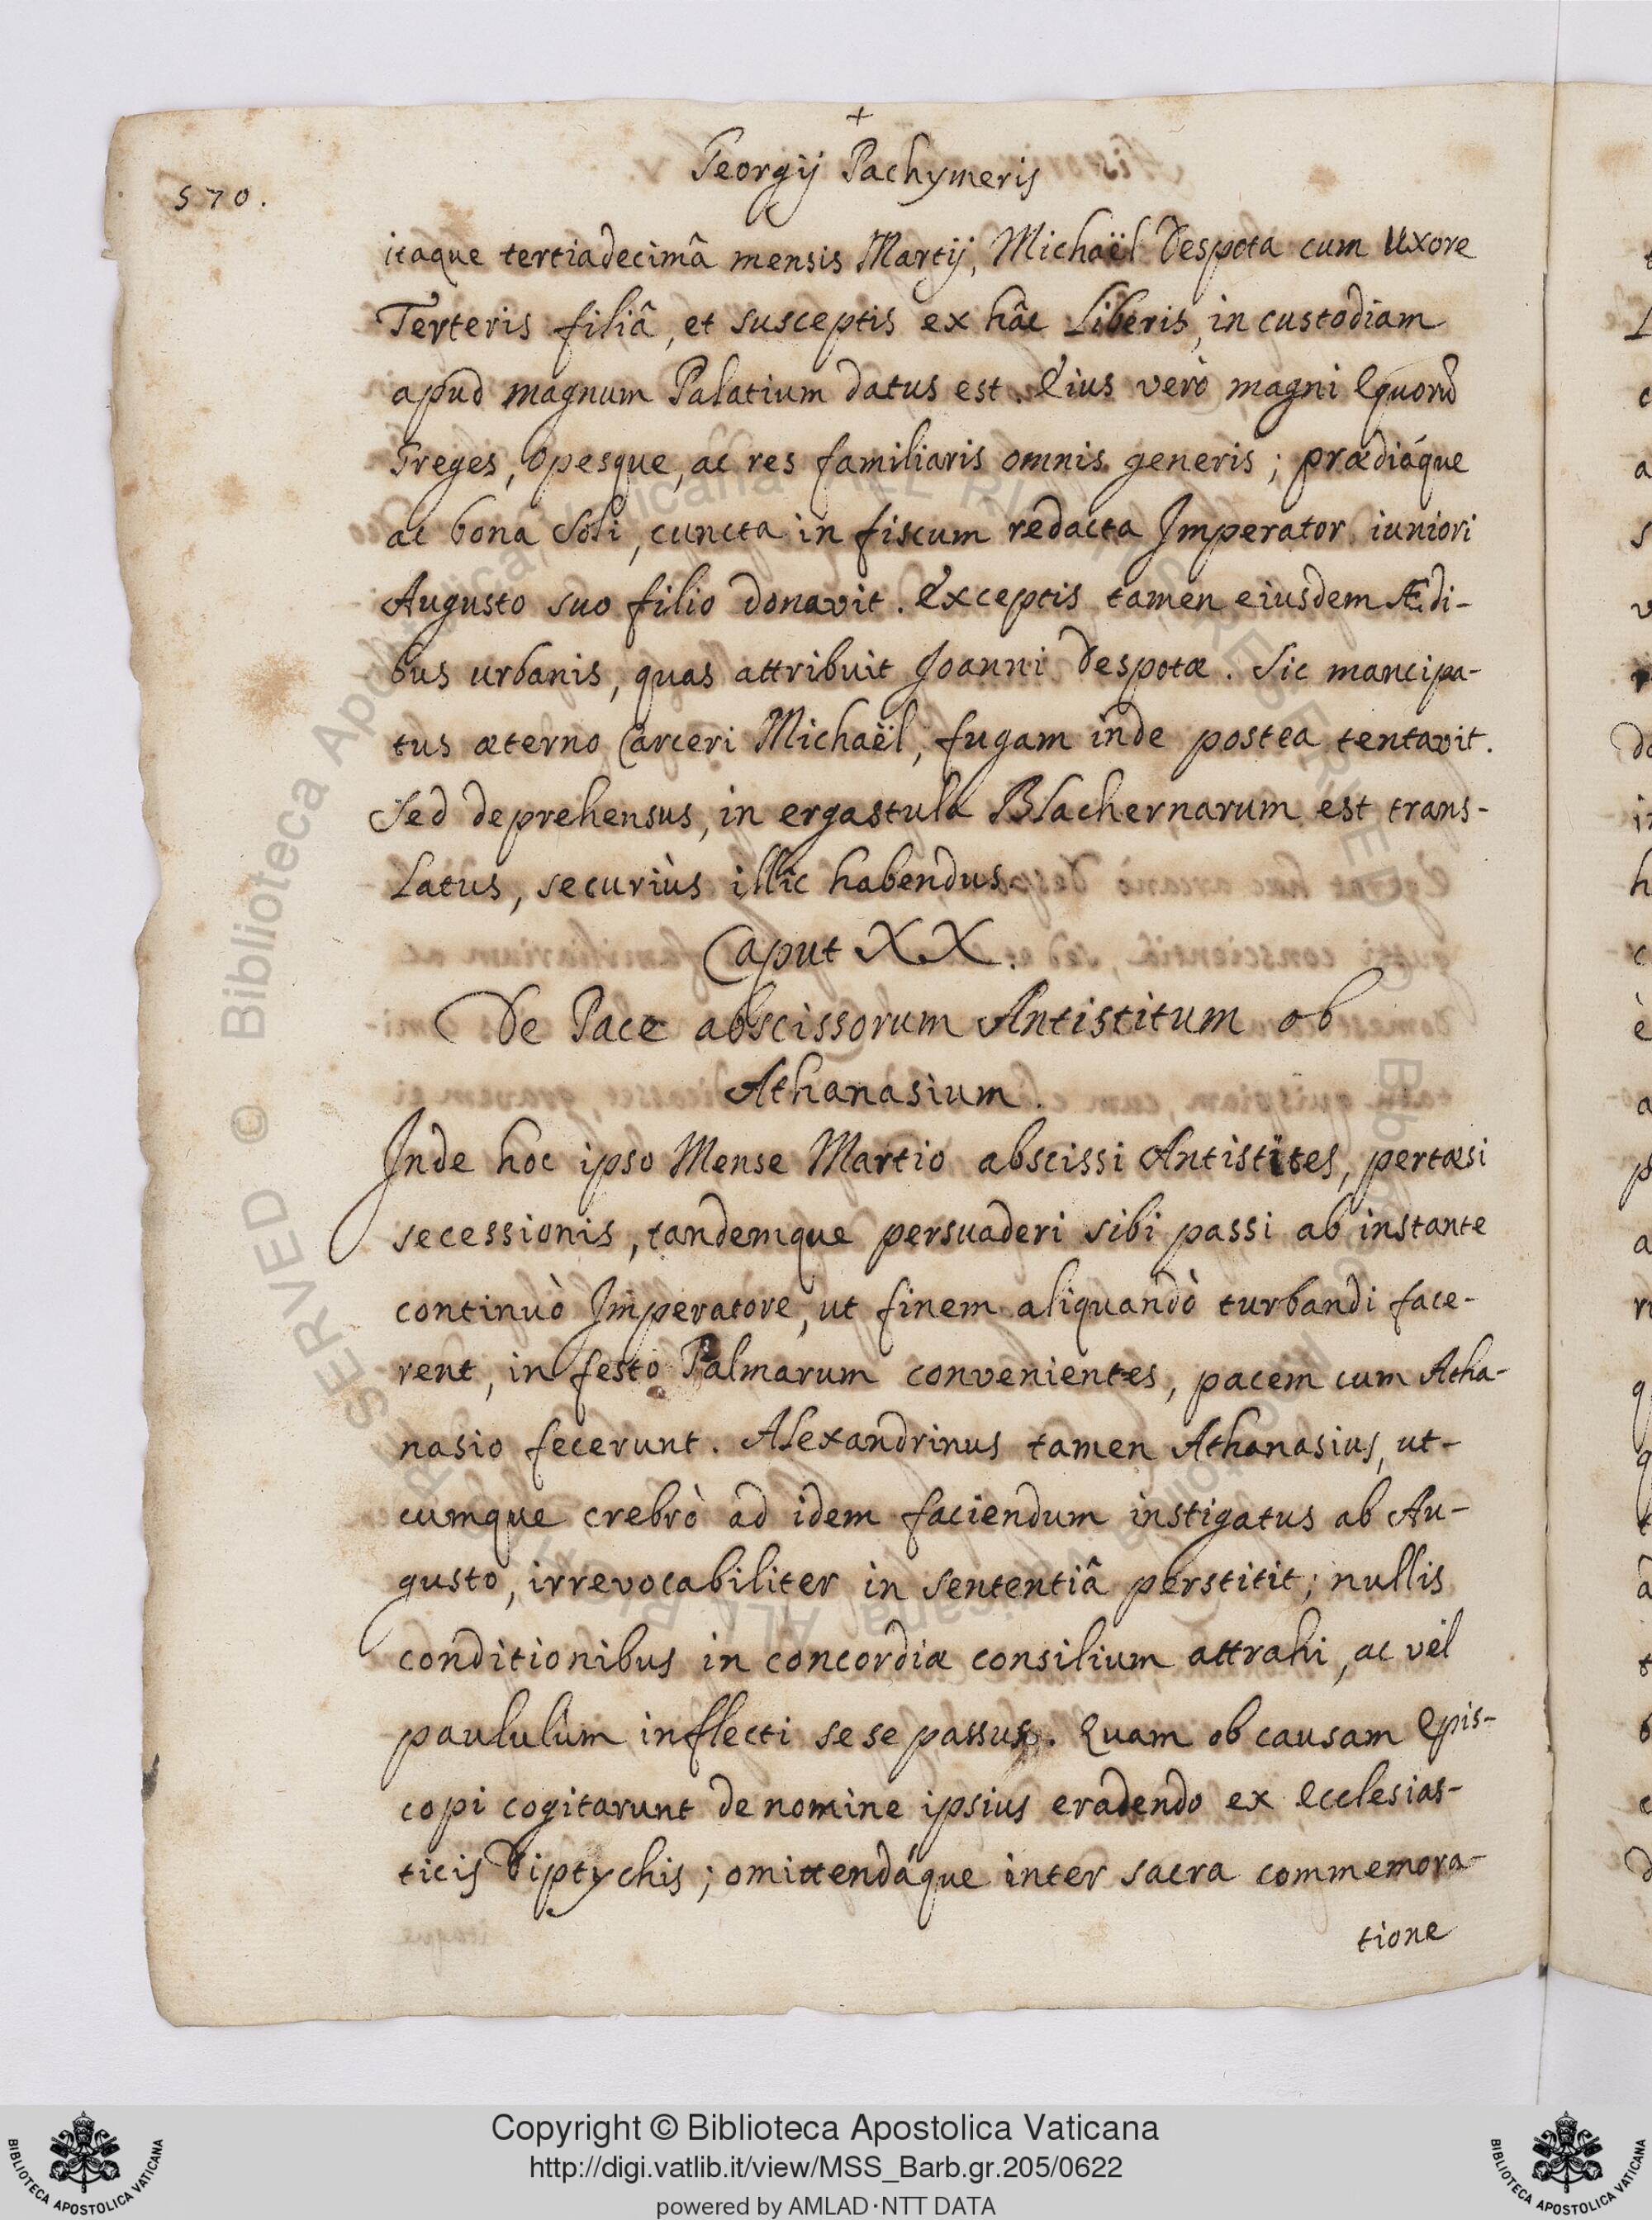 +
Georgij Pachymeris
570.
itaque tertiadecimâ mensis Martij, Michaël Despota cum Uxore
Terteris filiâ, et susceptis ex hâc Liberis, in custodiam
apud magnum Palatium datus est. Eius verò magni Equorũ
Greges, Opesque, ac res familiaris omnis generis; prædiáque
ac bona Soli, cuncta in fiscum redacta Imperator iuniori
Augusto suo filio donavit. Exceptis tamen eiusdem Ædi-
bus urbanis, quas attribuit Joanni Despotæ. Sic mancipa-
tus æterno Carceri Michaël, fugam inde postea tentavit.
Sed deprehensus, in ergastula Blachernarum est trans-
latus, securiùs illîc habendus.
Caput XX.
De Pace abscissorum Antistitum ob
Athanasium.
Inde hoc ipso Mense Martio abscissi Antistites, pertæsi
secessionis, tandemque persuaderi sibi passi ab instante
continuò Imperatore, ut finem aliquandò turbandi face-
rent, in festo Palmarum convenientes, pacem cum Atha-
nasio fecerunt. Alexandrinus tamen Athanasius, ut-
cumque crebrò ad idem faciendum instigatus ab Au-
gusto, irrevocabiliter in sententiâ perstitit; nullis
conditionibus in concordiæ consilium attrahi, ac vel
paululùm inflecti sese passus. Quam ob causam Epis-
copi cogitarunt de nomine ipsius eradendo ex Ecclesias-
ticis Diptychis; omittendáque inter sacra commemora-
tione
Copyright © Biblioteca Apostolica Vaticana
http://digi.vatlib.it/view/MSS_Barb.gr.205/0622
powered by AMLAD·NTT DATA
BIBLIOTECA APOSTOLICA VATICANA
BIBLIOTECA APOSTOLICA VATICANA